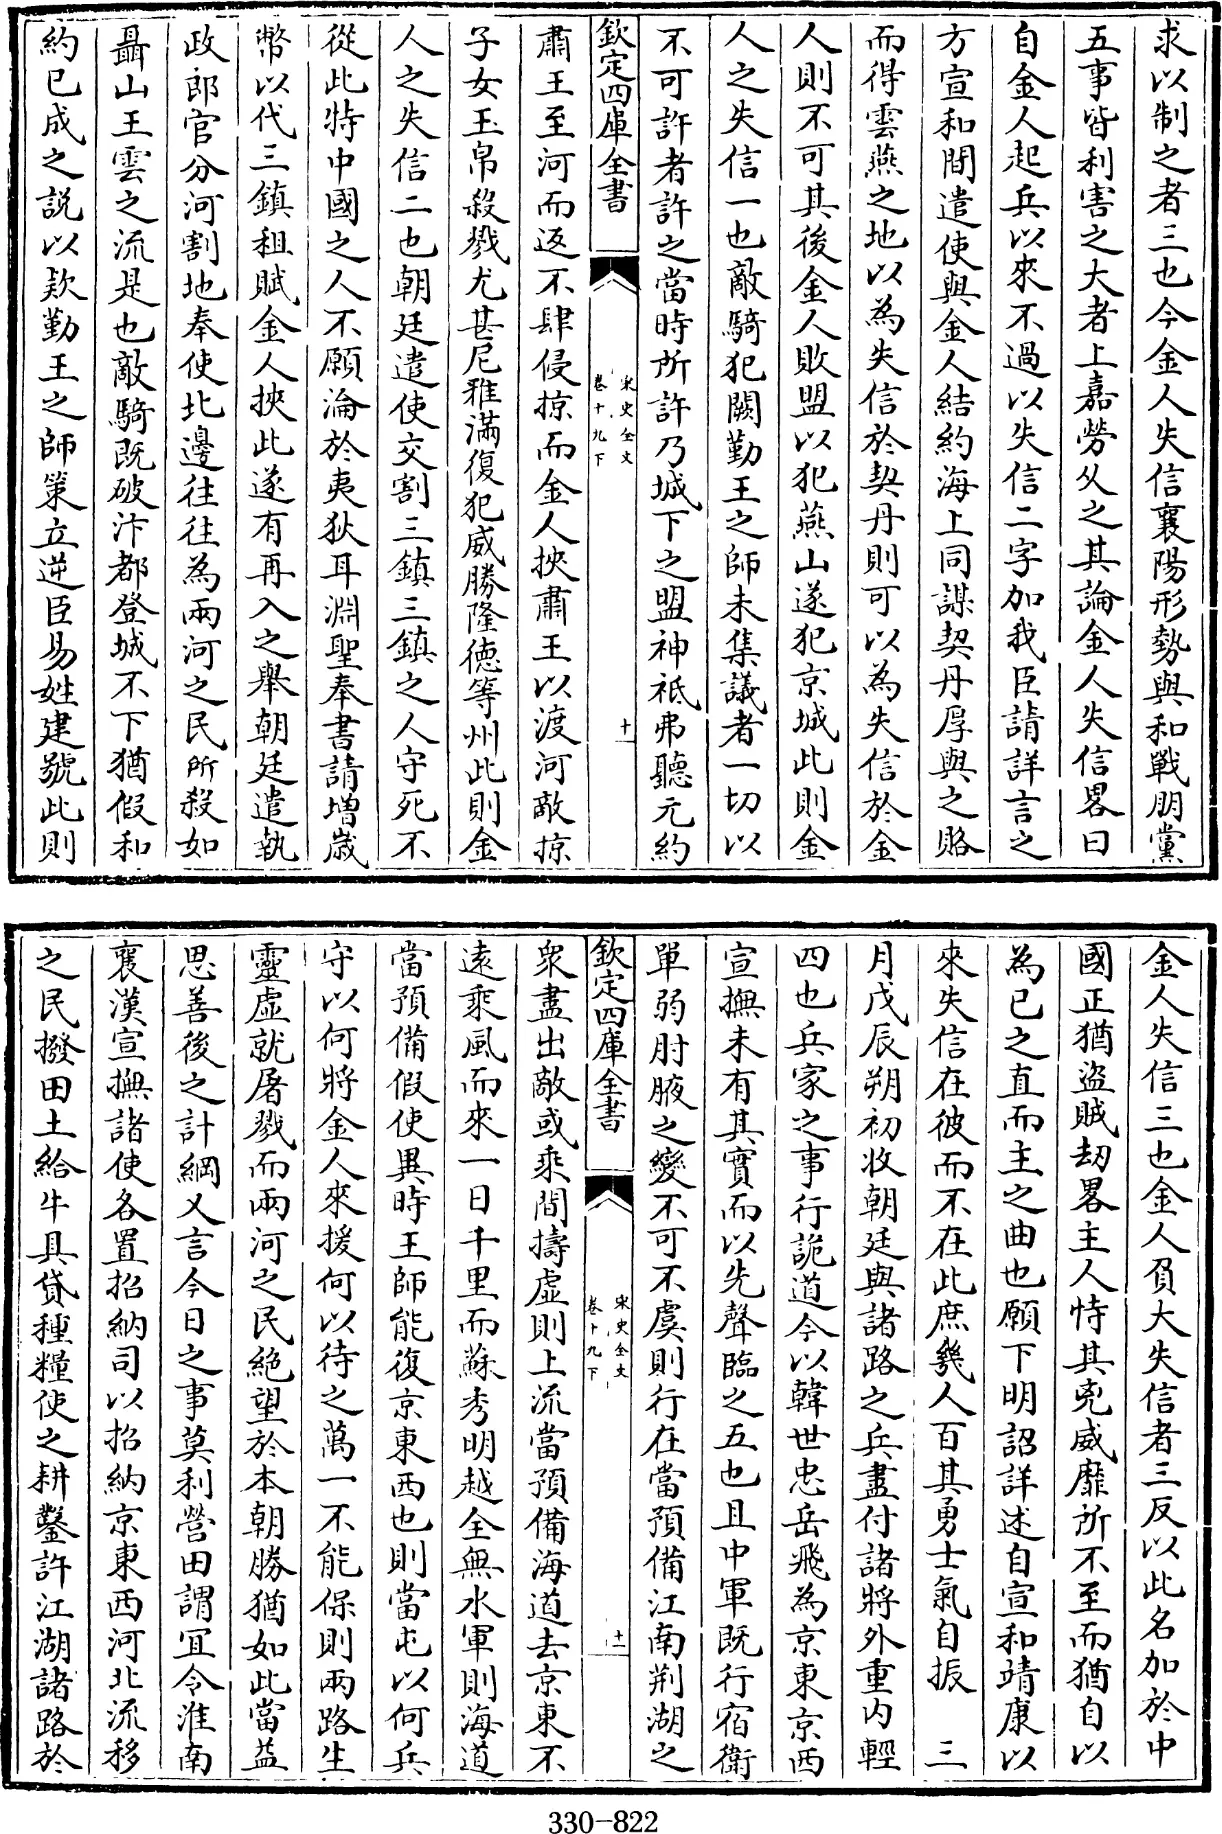 求以制之者三也今金人失信襄陽形勢與和戰朋黨
五事皆利害之大者上嘉勞久之其論金人失信畧曰
自金人起兵以來不過以失信二字加我臣請詳言之
方宣和間遣使與金人結約海上同謀契丹厚與之賂
而得雲燕之地以為失信於契丹則可以為失信於金
人則不可其後金人敗盟以犯燕山遂犯京城此則金
人之失信一也敵騎犯闕勤王之師未集議者一切以
不可許者許之當時所許乃城下之盟神祗弗聽元約
欽定四庫全書
宋史全文
卷十九下
十
肅王至河而返不肆侵掠而金人挾肅王以渡河敵掠
子女玉帛殺戮尤甚尼雅滿復犯威勝隆德等州此則金
人之失信二也朝廷遣使交割三鎮三鎮之人守死不
從此特中國之人不願淪於夷狄耳淵聖奉書請增歲
幣以代三鎮租賦金人挾此遂有再入之舉朝廷遣執
政郎官分河割地奉使北邊往往為兩河之民所殺如
聶山王雲之流是也敵騎既破汴都登城不下猶假和
約已成之說以欵勤王之師策立逆臣易姓建號此則
金人失信三也金人負大失信者三反以此名加於中
國正猶盜賊刼畧主人恃其兇威靡所不至而猶自以
為已之直而主之曲也願下明詔詳述自宣和靖康以
來失信在彼而不在此庶幾人百其勇士氣自振　三
月戊辰朔初收朝廷與諸路之兵盡付諸將外重内輕
四也兵家之事行詭道今以韓世忠岳飛為京東京西
宣撫未有其實而以先聲臨之五也且中軍既行宿衛
單弱肘腋之變不可不虞則行在當預備江南荆湖之
欽定四庫全書
宋史全文
卷十九下
十一
衆盡出敵或乘間擣虛則上流當預備海道去京東不
遠乘風而來一日千里而蘇秀明越全無水軍則海道
當預備假使異時王師能復京東西也則當屯以何兵
守以何將金人來援何以待之萬一不能保則兩路生
靈虛就屠戮而兩河之民絶望於本朝勝猶如此當益
思善後之計綱又言今日之事莫利營田謂宜令淮南
襄漢宣撫諸使各置招納司以招納京東西河北流移
之民撥田土給牛具貸種糧使之耕鑿許江湖諸路於
330-822